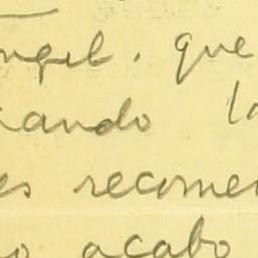 ngel, que
ando lo
es recomen
no acabo